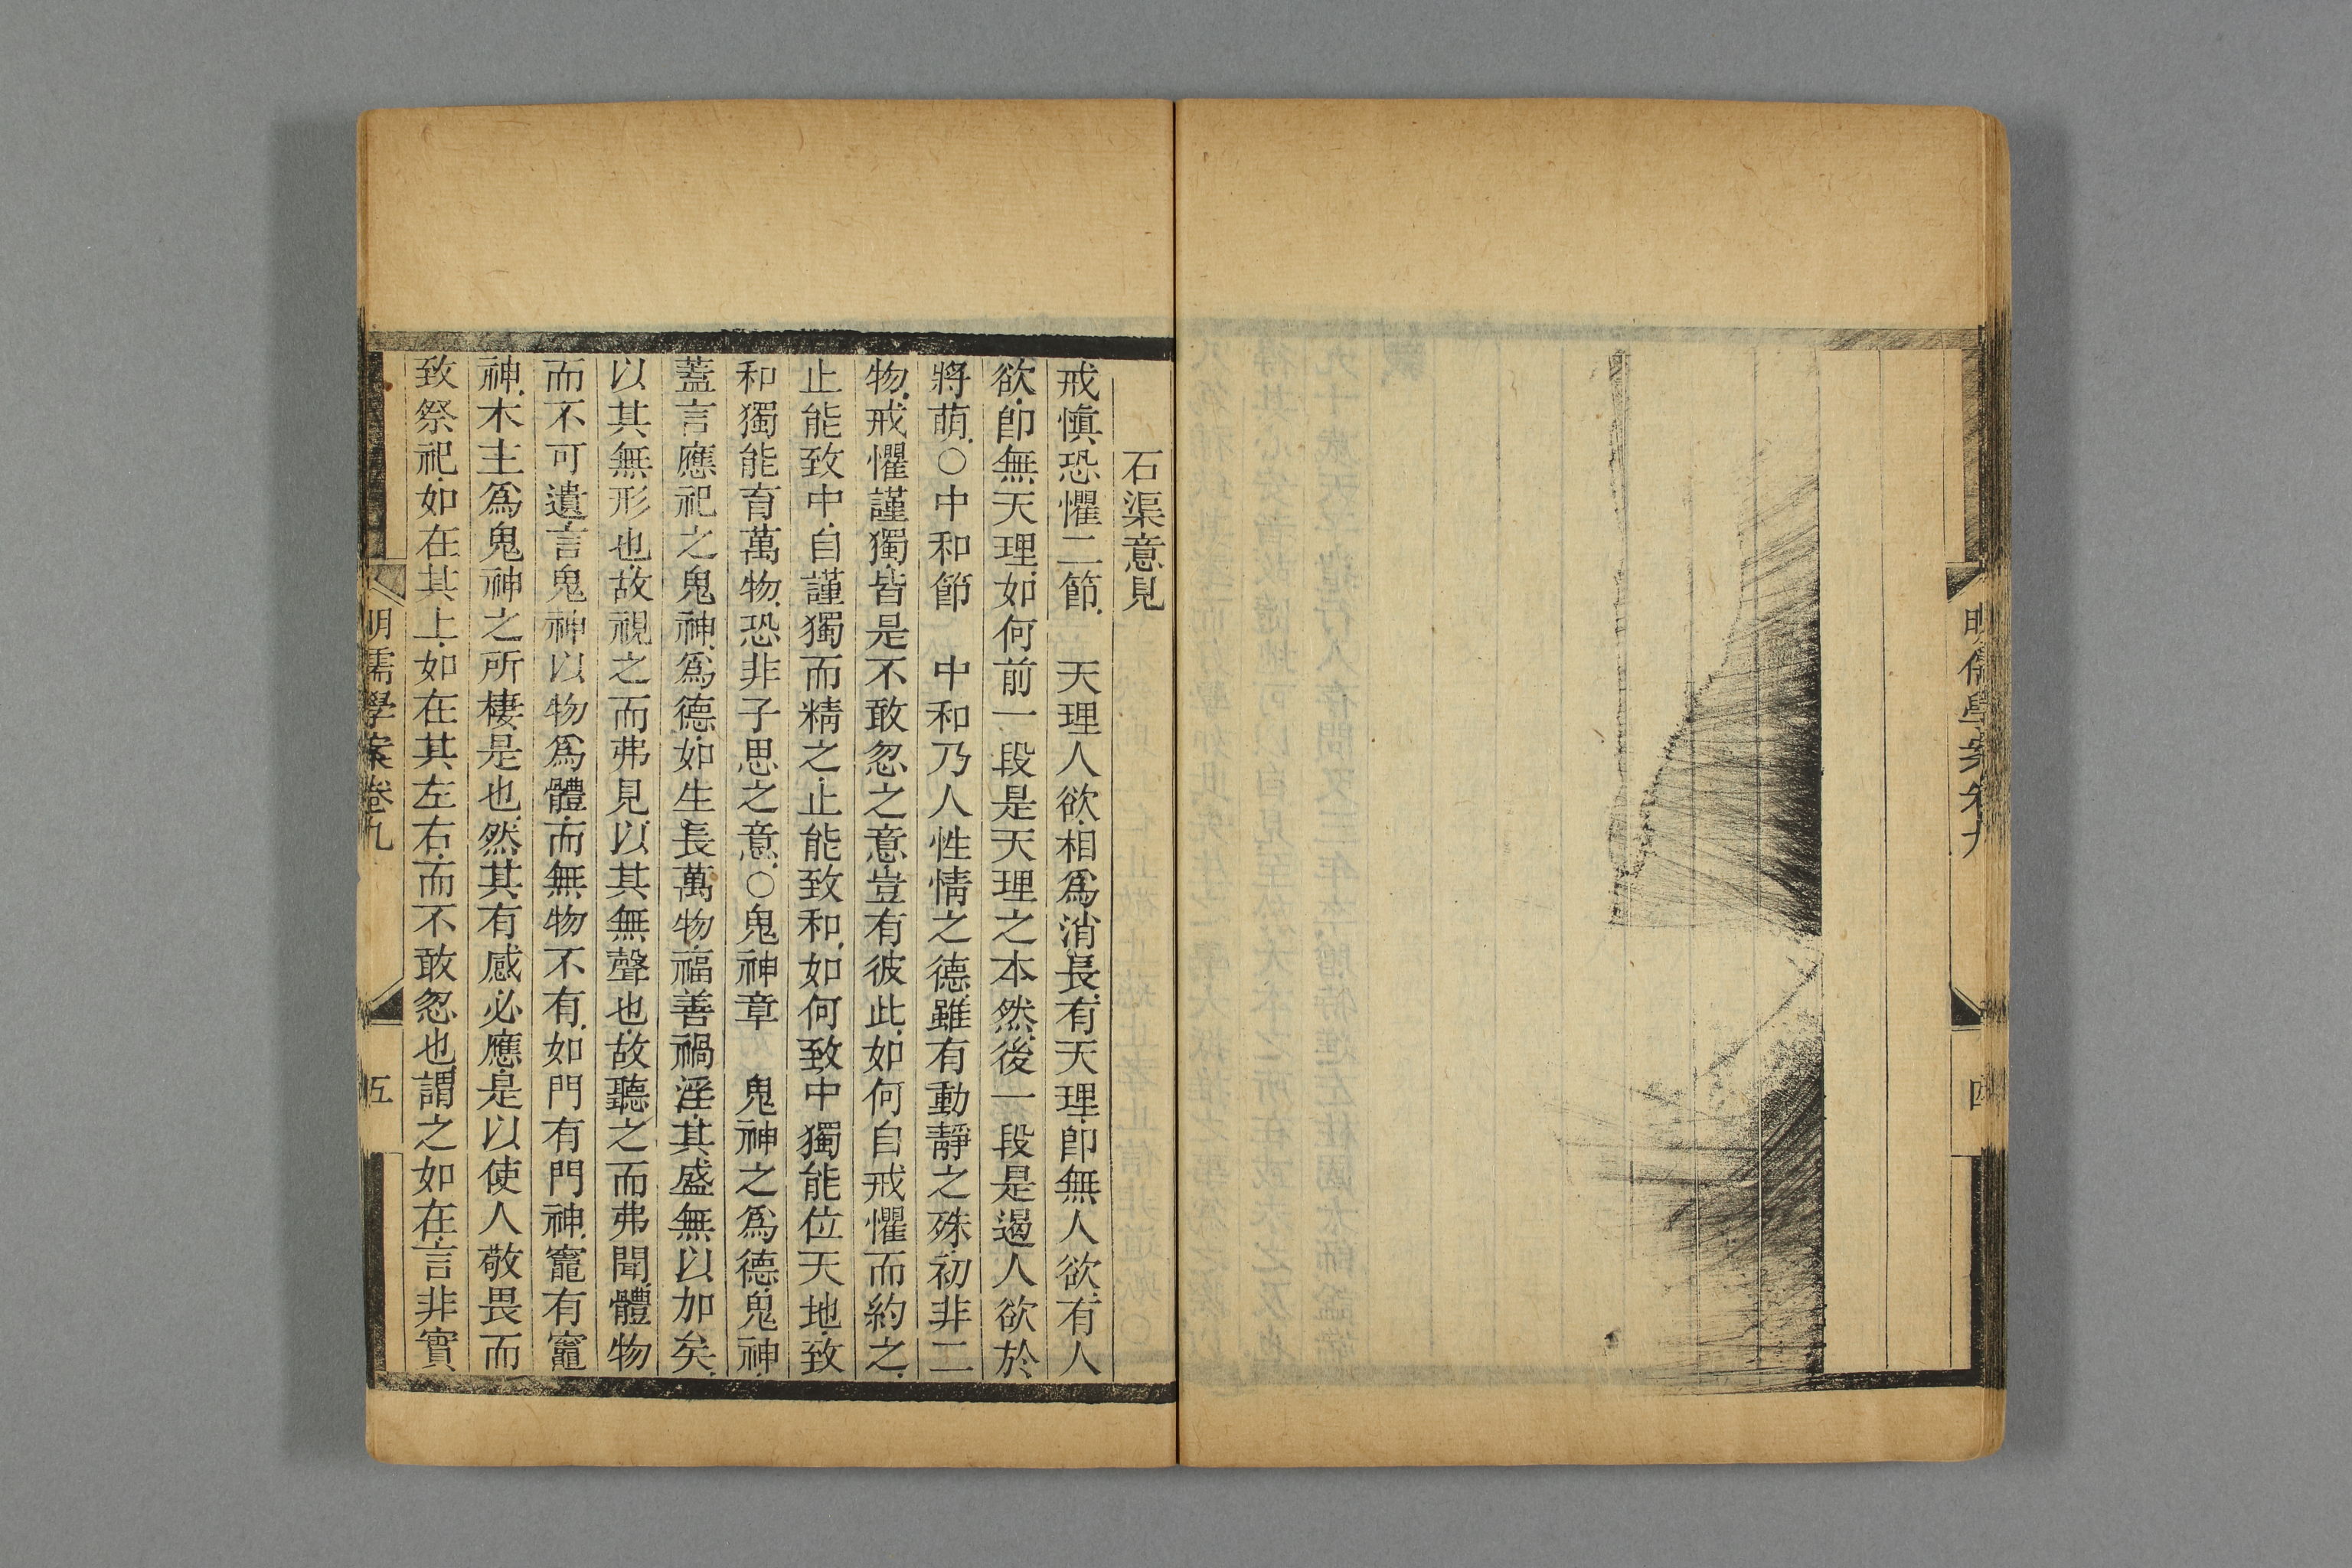 明儒學案卷九
四
石渠意見
戒愼恐懼二節　天理人欲相爲消長有天理卽無人欲有人
欲卽無天理如何前一段是天理之本然後一段是遏人欲於
將萌○中和節　中和乃人性情之德雖有動靜之殊初非二
物戒懼謹獨皆是不敢忽之意豈有彼此如何自戒懼而約之
止能致中自謹獨而精之止能致和如何致中獨能位天地致
和獨能育萬物恐非子思之意○鬼神章　鬼神之爲德鬼神
蓋言應祀之鬼神爲德如生長萬物福善禍淫其盛無以加矣
以其無形也故視之而弗見以其無聲也故聽之而弗聞體物
而不可遺言鬼神以物爲體而無物不有如門有門神竈有竈
神木主爲鬼神之所棲是也然其有感必應是以使人敬畏而
致祭祀如在其上如在其左右而不敢忽也謂之如在言非實
明儒学案卷九
五